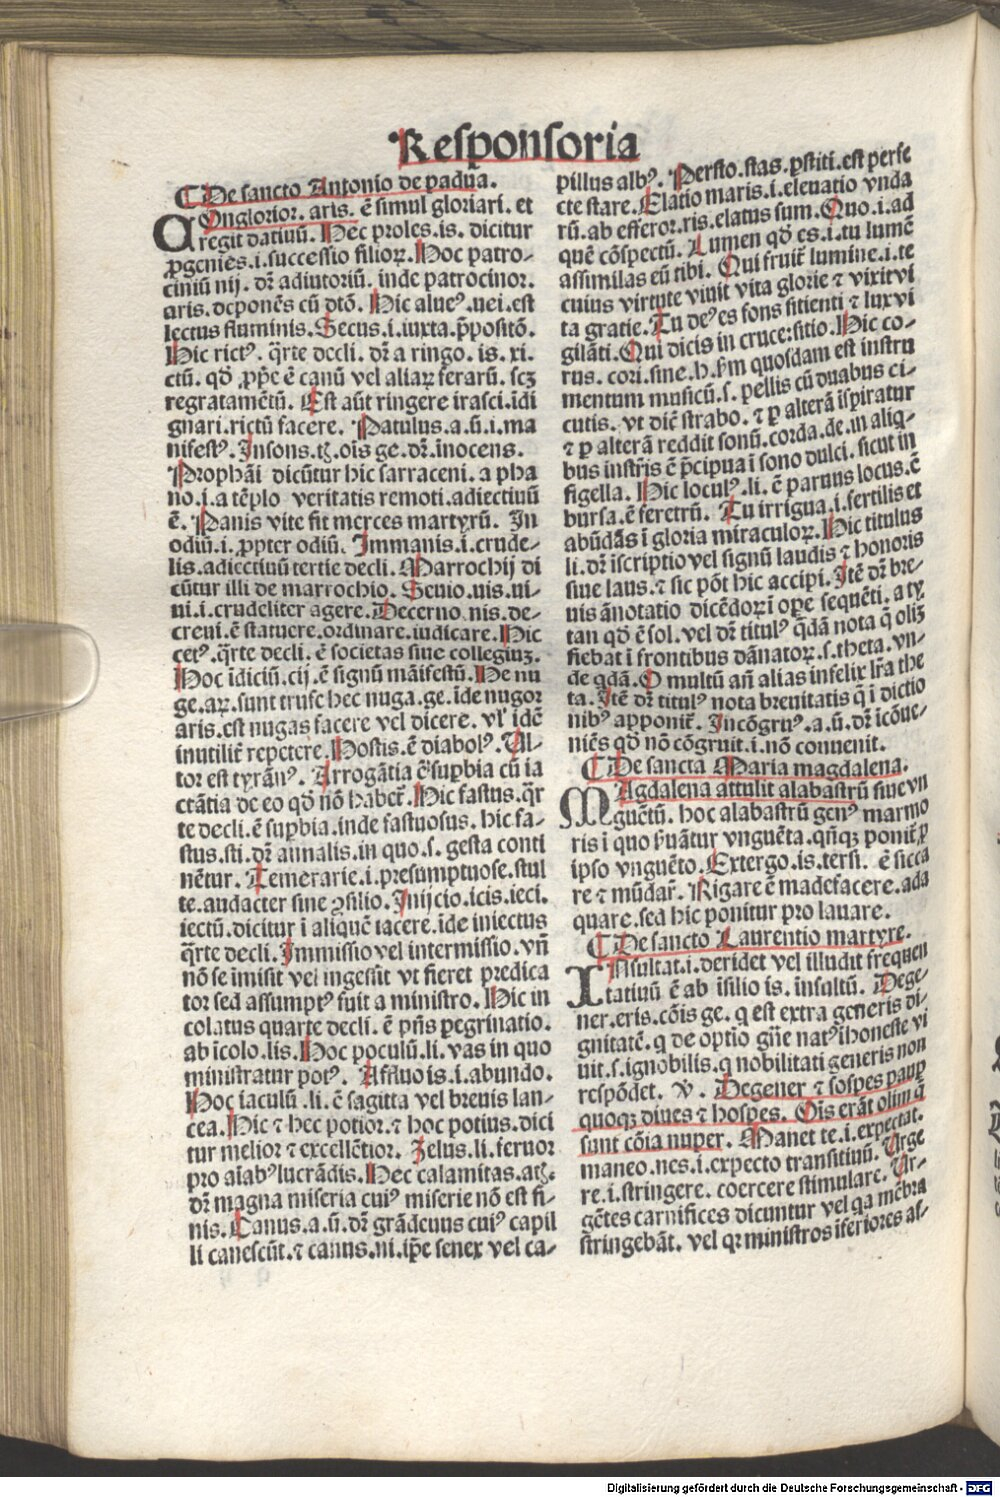 Responsoria
De sancto Antonio de padua.
COnglorior. aris. ē simul gloriari. et
regit datiuū. Hec proles. is. dicitur
ꝓgenies. i. successio filioꝝ. Hoc patro-
ciniū nij. dr̄ adiutoriū. inde patrocinor.
aris. deponēs cū dtō. Hic alueꝰ. uei. est
lectus fluminis. Secus. i. iuxta. p̄positō.
Hic rictꝰ. q̄rte decli. dr̄ a ringo. is. xi.
ctū. qď ꝓpe ē canū vel aliaꝝ ferarū. scꝫ
regratamētū. Est aūt ringere irasci. idi
gnari. rictū facere. Patulus. a. ū. i. ma
nifestꝰ. Insons. tꝫ. oīs ge. dr̄. īnocens.
Prophāi dicūtur hic sarraceni. a pha
no. i. a tēplo veritatis remoti. adiectiuū
ē. Panis vite fit merces martyrū. In
odiū. i. ꝓpter odiū. Immanis. i. crude-
lis. adiectiuū tertie decli. Marrochij di
cūtur illi de marrochio. Seuio. uis. ui-
ui. i. crudeliter agere. Decerno. nis. de-
creui. ē statuere. ordinare. iudicare. Hic
cetꝰ. q̄rte decli. ē societas siue collegiuꝫ.
Hoc īdiciū. cij. ē signū māifestū. He nu
ge. aꝝ. sunt trufe hec nuga. ge. īde nugor
aris. est nugas facere vel dicere. vl' idē
inutilit̄ repetere. Hostis. ē diabolꝰ. Ul-
tor est tyrānꝰ. Arrogātia ē supbia cū ia
ctātia de eo qď nō habet̄. Hic fastus. q̄r
te decli. ē supbia. inde fastuosus. hic fa-
stus. sti. dr̄ annalis. in quo. s. gesta conti
nētur. Temerarie. i. presumptuose. stul
te. audacter sine ꝯsilio. Inijcio. icis. ieci.
iectū. dicitur ī aliquē iacere. īde iniectus
q̄rte decli. Immissio vel intermissio. vñ
nō se īmisit vel ingessit vt fieret predica
tor sed assumptꝰ fuit a ministro. Hic in
colatus quarte decli. ē pñs pegrinatio.
ab īcolo. lis. Hoc poculū. li. vas in quo
ministratur potꝰ. Affluo is. i. abundo.
Hoc iaculū. li. ē sagitta vel breuis lan-
cea. Hic ⁊ hec potior. ⁊ hoc potius. dici
tur melior ⁊ excellētior. Zelus. li. feruor
pro aīabꝰ lucrādis. Hec calamitas. atꝫ.
dr̄ magna miseria cuiꝰ miserie nō est fi-
nis. Canus. a. ū. dr̄ grādeuus cuiꝰ capil
li canescūt. ⁊ canus. ni. ip̄e senex vel ca-
pillus albꝰ. Persto. stas. ꝑstiti. est perfe
cte stare. Elatio maris. i. eleuatio vnda
rū. ab efferor. ris. elatus sum. Quo. i. ad
quē cōspectū. Lumen qď es. i. tu lumē
assimilas eū tibi. Qui fruit̄ lumine. i. te
cuius virtute viuit vita glorie ⁊ vixit vi
ta gratie. Tu deꝰ es fons sitienti ⁊ lux vi
gilāti. Qui dicis in cruce: sitio. Hic co-
rus. cori. sine. h. ẜm quosdam est instru
mentum musicū. s. pellis cū duabus ci-
cutis. vt dicit strabo. ⁊ ꝑ alterā īspiratur
⁊ ꝑ alterā reddit sonū. corda. de. in aliq-
bus instr̄is ē p̄cipua ī sono dulci. sicut in
figella. Hic loculꝰ. li. ē paruus locus. ē
bursa. ē feretrū. Tu irrigua. i. fertilis et
abūdās ī gloria miraculoꝝ. Hic titulus
li. dr̄ īscriptio vel signū laudis ⁊ honoris
siue laus. ⁊ sic pōt hic accipi. Itē dr̄ bre-
uis ānotatio dicēdoꝝ ī ope sequēti. a ty
tan qď ē sol. vel dr̄ titulꝰ q̄dā nota q̄ olī
fiebat ī frontibus dānatoꝝ. s. theta. vn-
de qdā. O multū añ alias infelix lr̄a the
ta. Itē dr̄ titulꝰ nota breuitatis q̄ ī dictio
nibꝰ apponit̄. Incōgruꝰ. a. ū. dr̄ icōue-
niēs qď nō cōgruit. i. nō conuenit.
De sancta Maria magdalena.
MAgdalena attulit alabastrū siue vn
guētū. hoc alabastrū genꝰ marmo
ris ī quo ẜuātur vnguēta. qñqꝫ ponit̄ ꝓ
ipso vnguēto. Extergo. is. tersi. ē sicca
re ⁊ mūdar̄. Rigare ē madefacere. ada
quare. sed hic ponitur pro lauare.
De sancto Laurentio martyre.
INsultat. i. deridet vel illudit frequen
tatiuū ē ab īsilio is. insultū. Dege-
ner. eris. cōis ge. q est extra generis di-
gnitatē. q de optio gñe natꝰ īhoneste vi
uit. s. ignobilis. q nobilitati generis non
respōdet. ℣. Degener ⁊ sospes paup
quoqꝫ diues ⁊ hospes. Oīs erāt olim q̄
sunt cōia nuper. Manet te. i. expectat.
maneo. nes. i. expecto transitiuū. Urge
re. i. stringere. coercere stimulare. Ur-
gētes carnifices dicuntur vel qa mēbra
stringebāt. vel qꝛ ministros īferiores af-
Digitalisierung gefördert durch die Deutsche Forschungsgemeinschaft - DFG